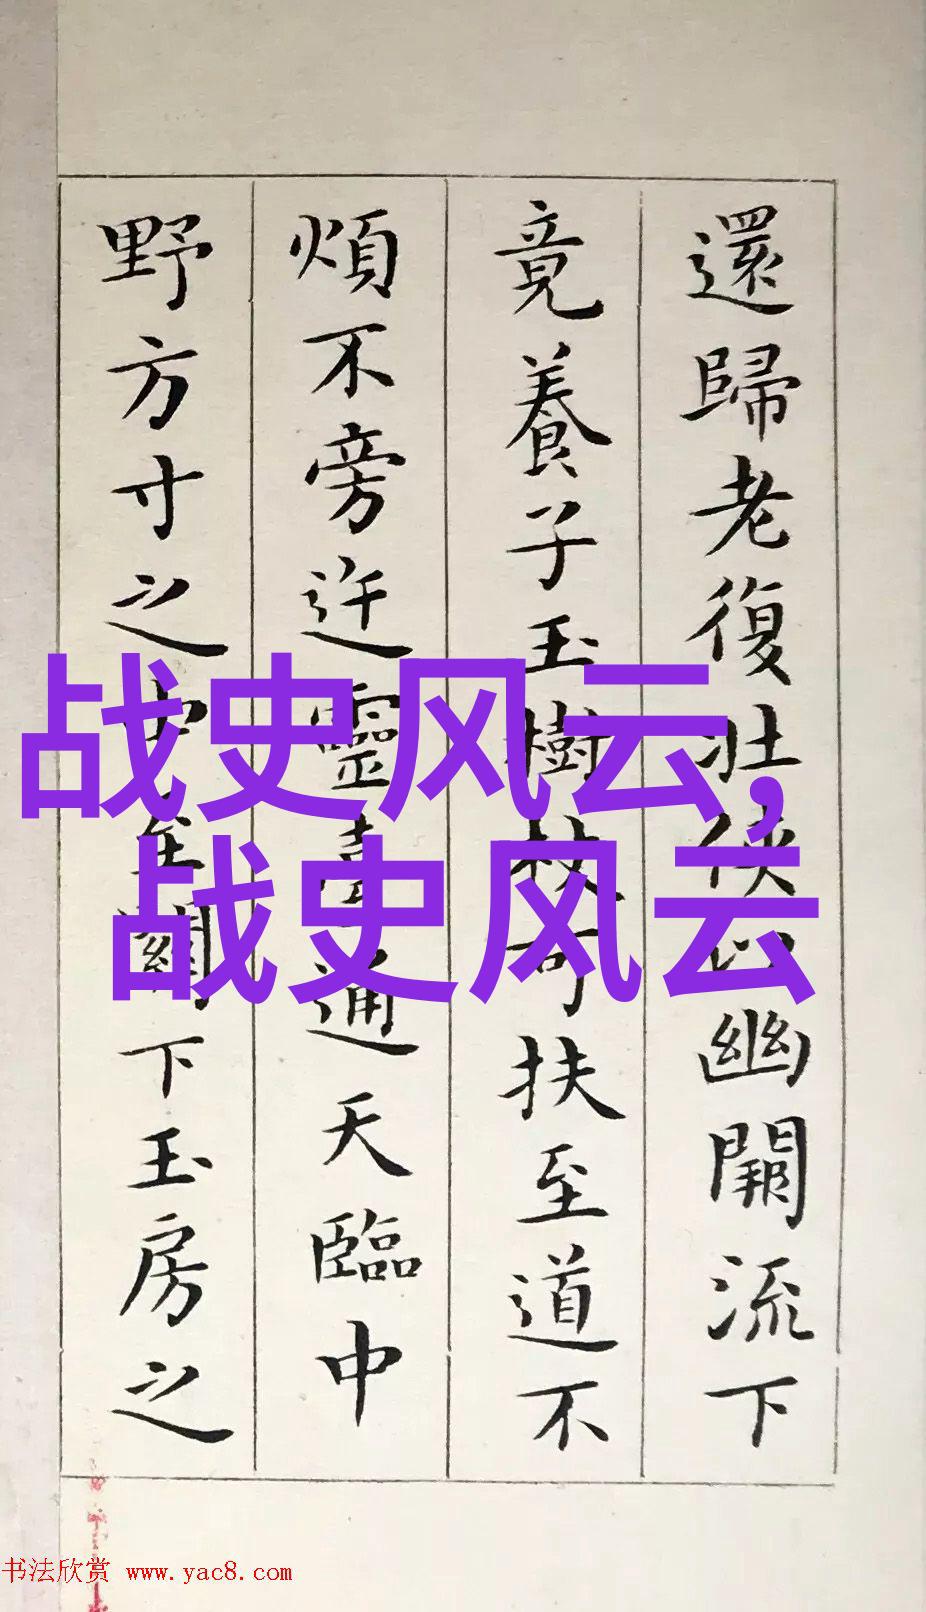 還歸老復壯俠以幽闕流下
竟養子玉樹杖可扶至道不
煩不旁迕靈臺通天臨中
野方寸之中至關下玉房之
战史风云,
战史风云
书法欣赏 www.yac8.com